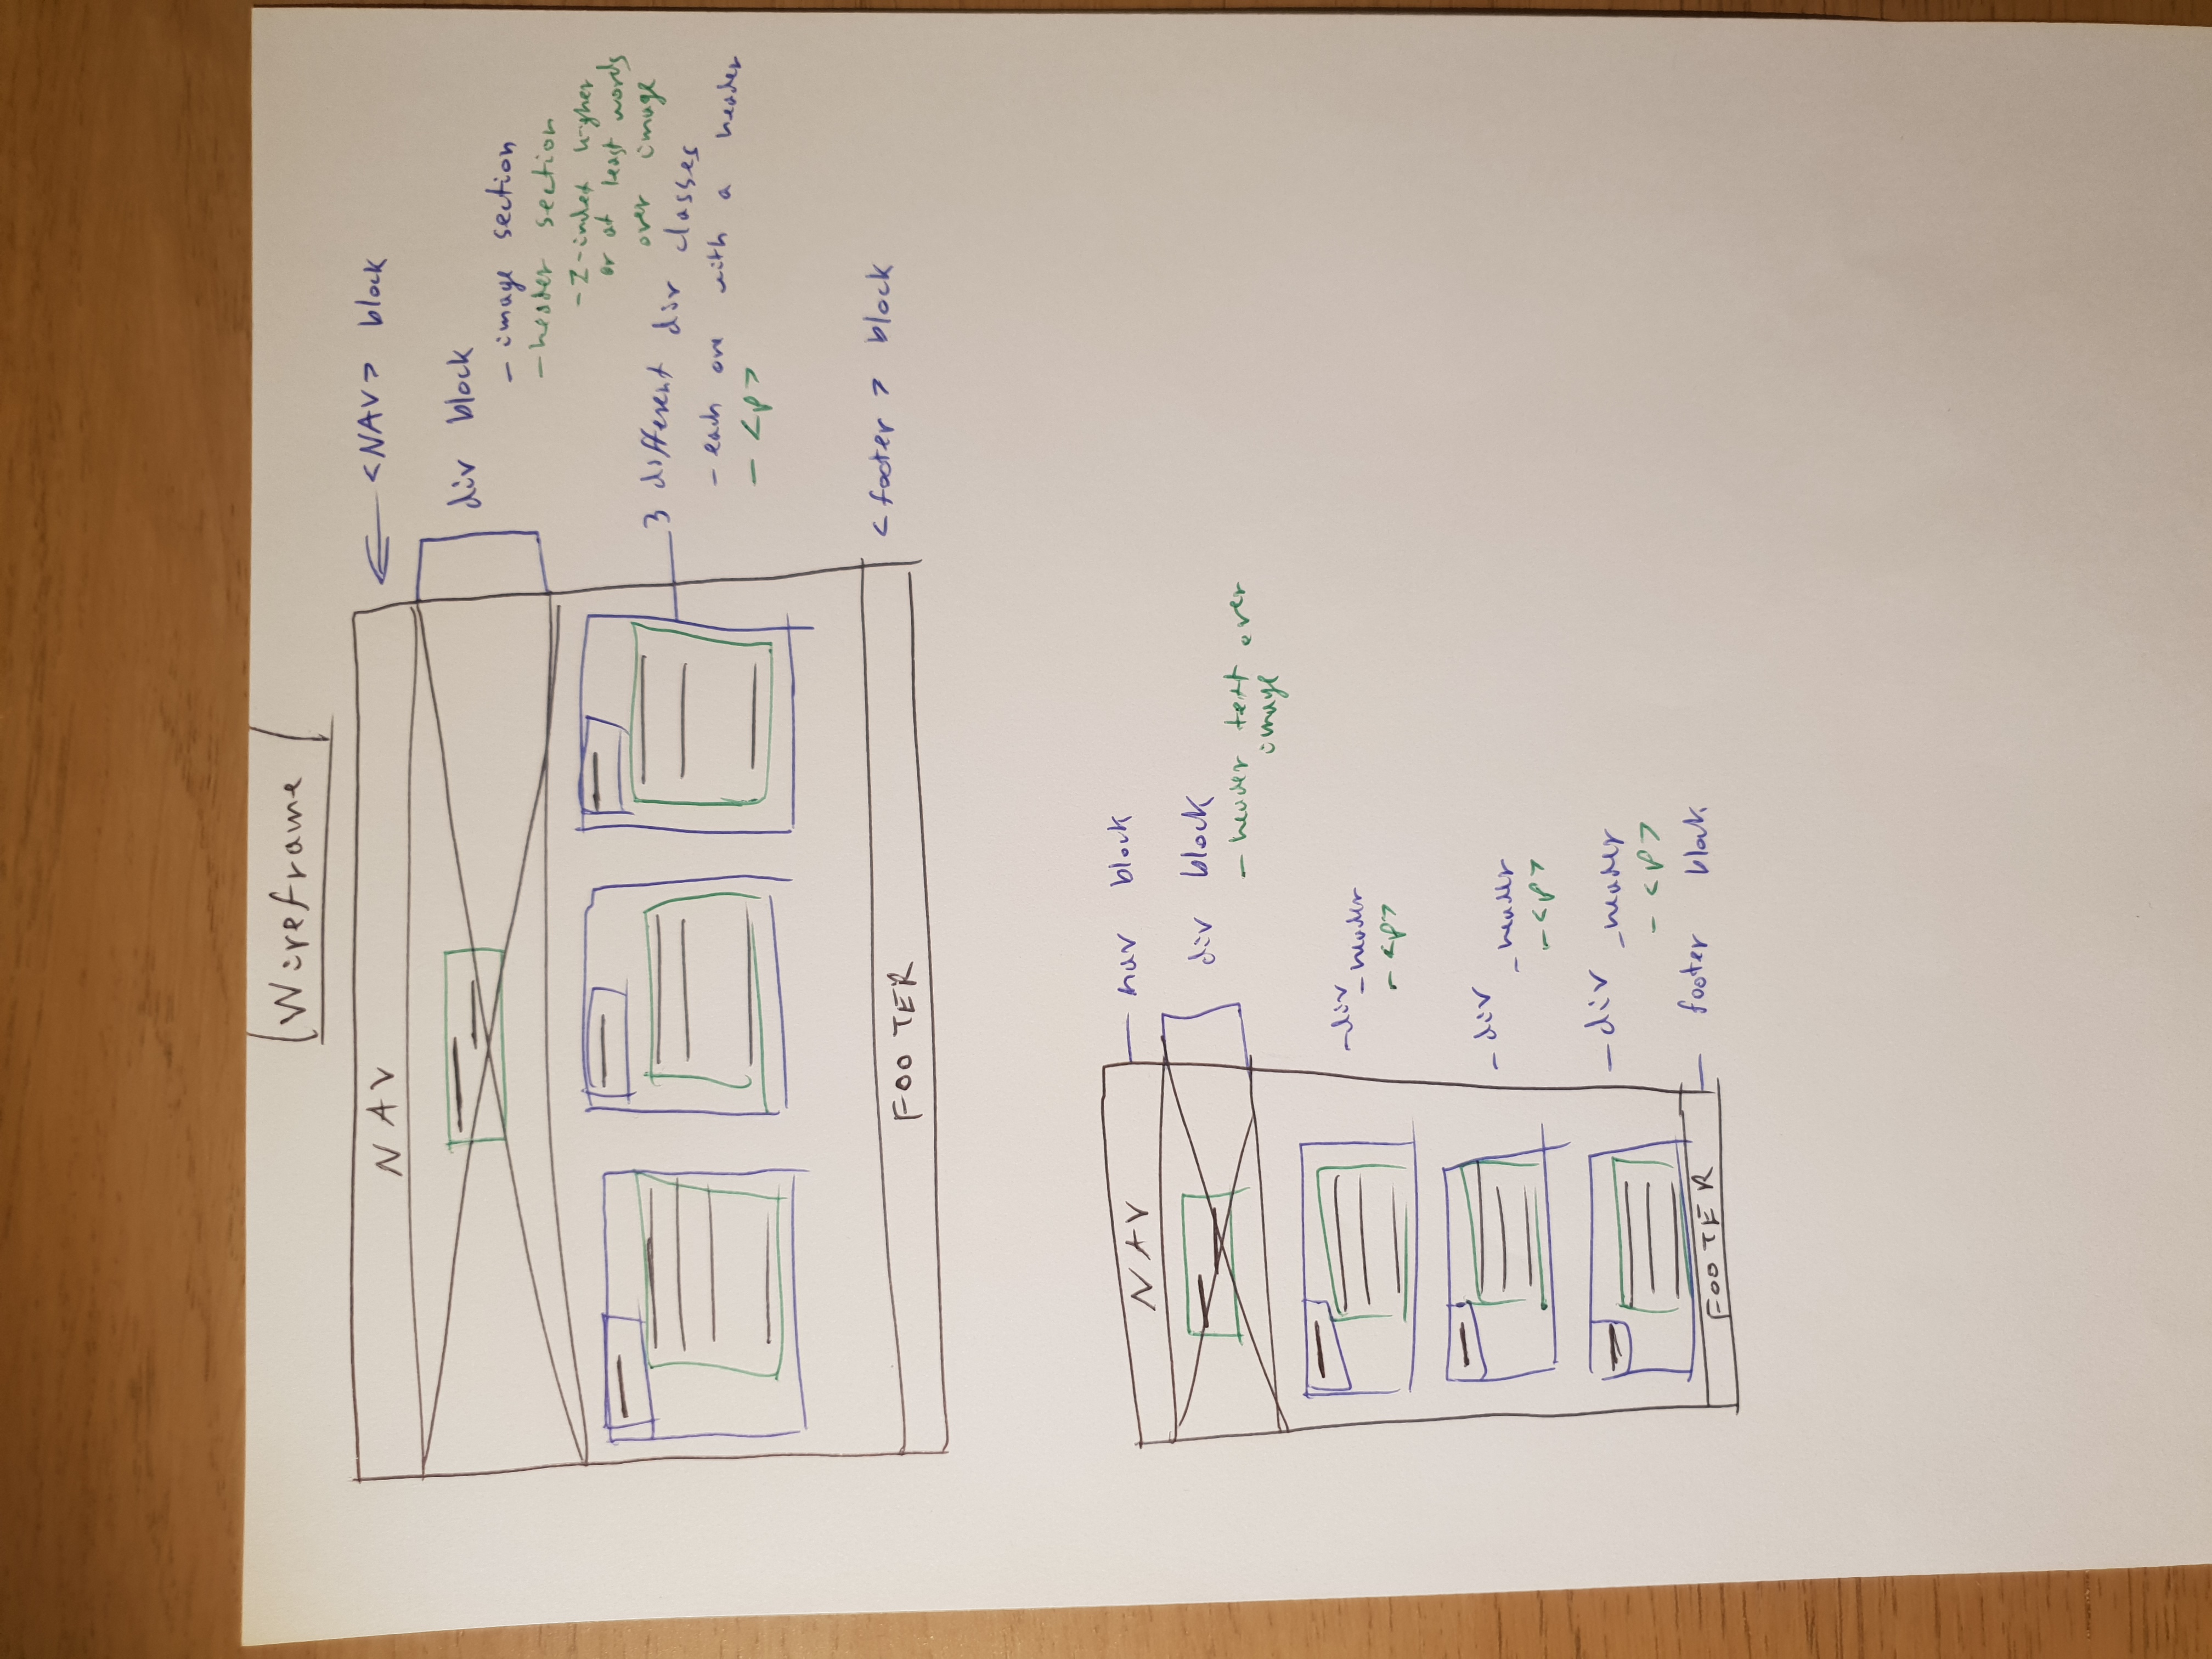 Wireframe
NAV
<NAV> block
div block
- image section
- header section
- Z-index higher
or at least words
over image
3 different div classes
- each one with a header
- <p>
FOOTER
<footer> block
NAV
nav block
div block
- header text over
image
- div
- header
- <p>
- div
- header
- <p>
- div - header
- <p>
FOOTER
footer block